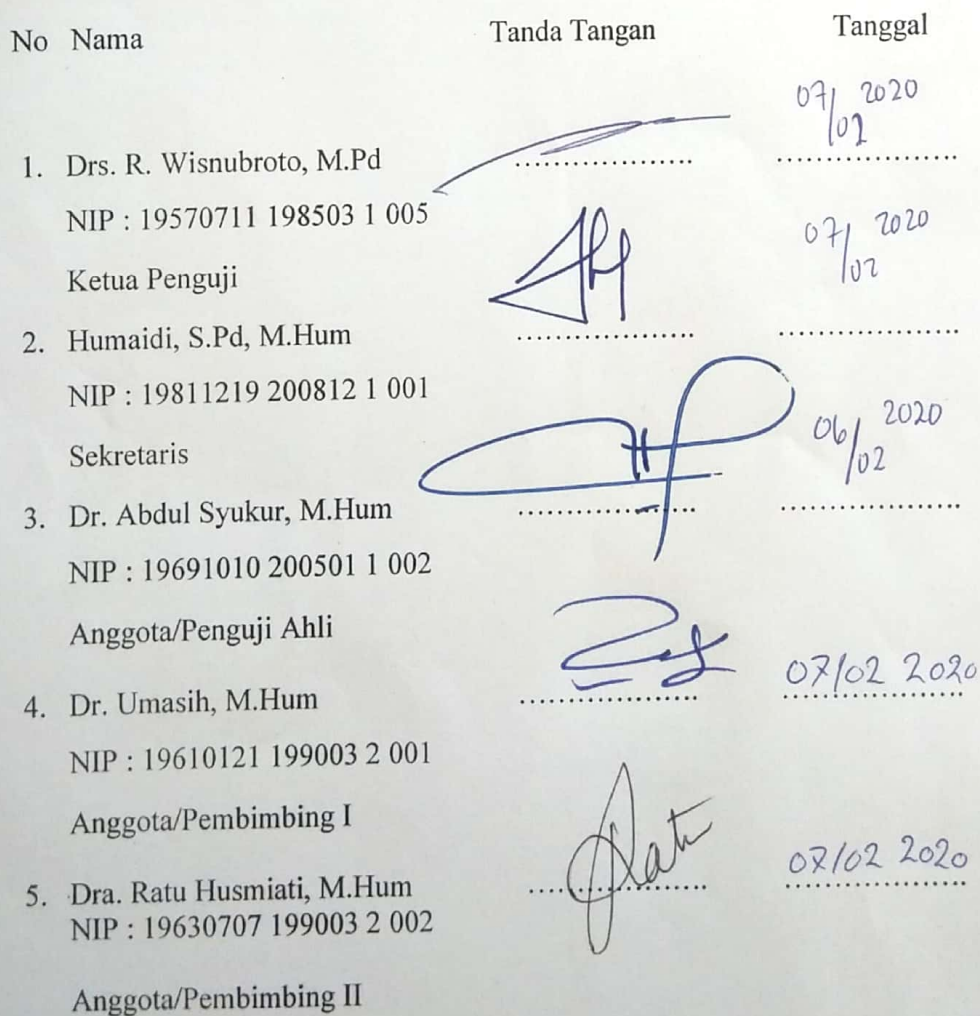 No Nama Tanda Tangan Tanggal
07/02 2020
1. Drs. R. Wisnubroto, M.Pd ..................... .....................
NIP : 19570711 198503 1 005
07/02 2020
Ketua Penguji
2. Humaidi, S.Pd, M.Hum ..................... .....................
NIP : 19811219 200812 1 001
06/02 2020
Sekretaris
3. Dr. Abdul Syukur, M.Hum ..................... .....................
NIP : 19691010 200501 1 002
Anggota/Penguji Ahli
07/02 2020
4. Dr. Umasih, M.Hum ..................... .....................
NIP : 19610121 199003 2 001
Anggota/Pembimbing I
07/02 2020
5. Dra. Ratu Husmiati, M.Hum ..................... .....................
NIP : 19630707 199003 2 002
Anggota/Pembimbing II